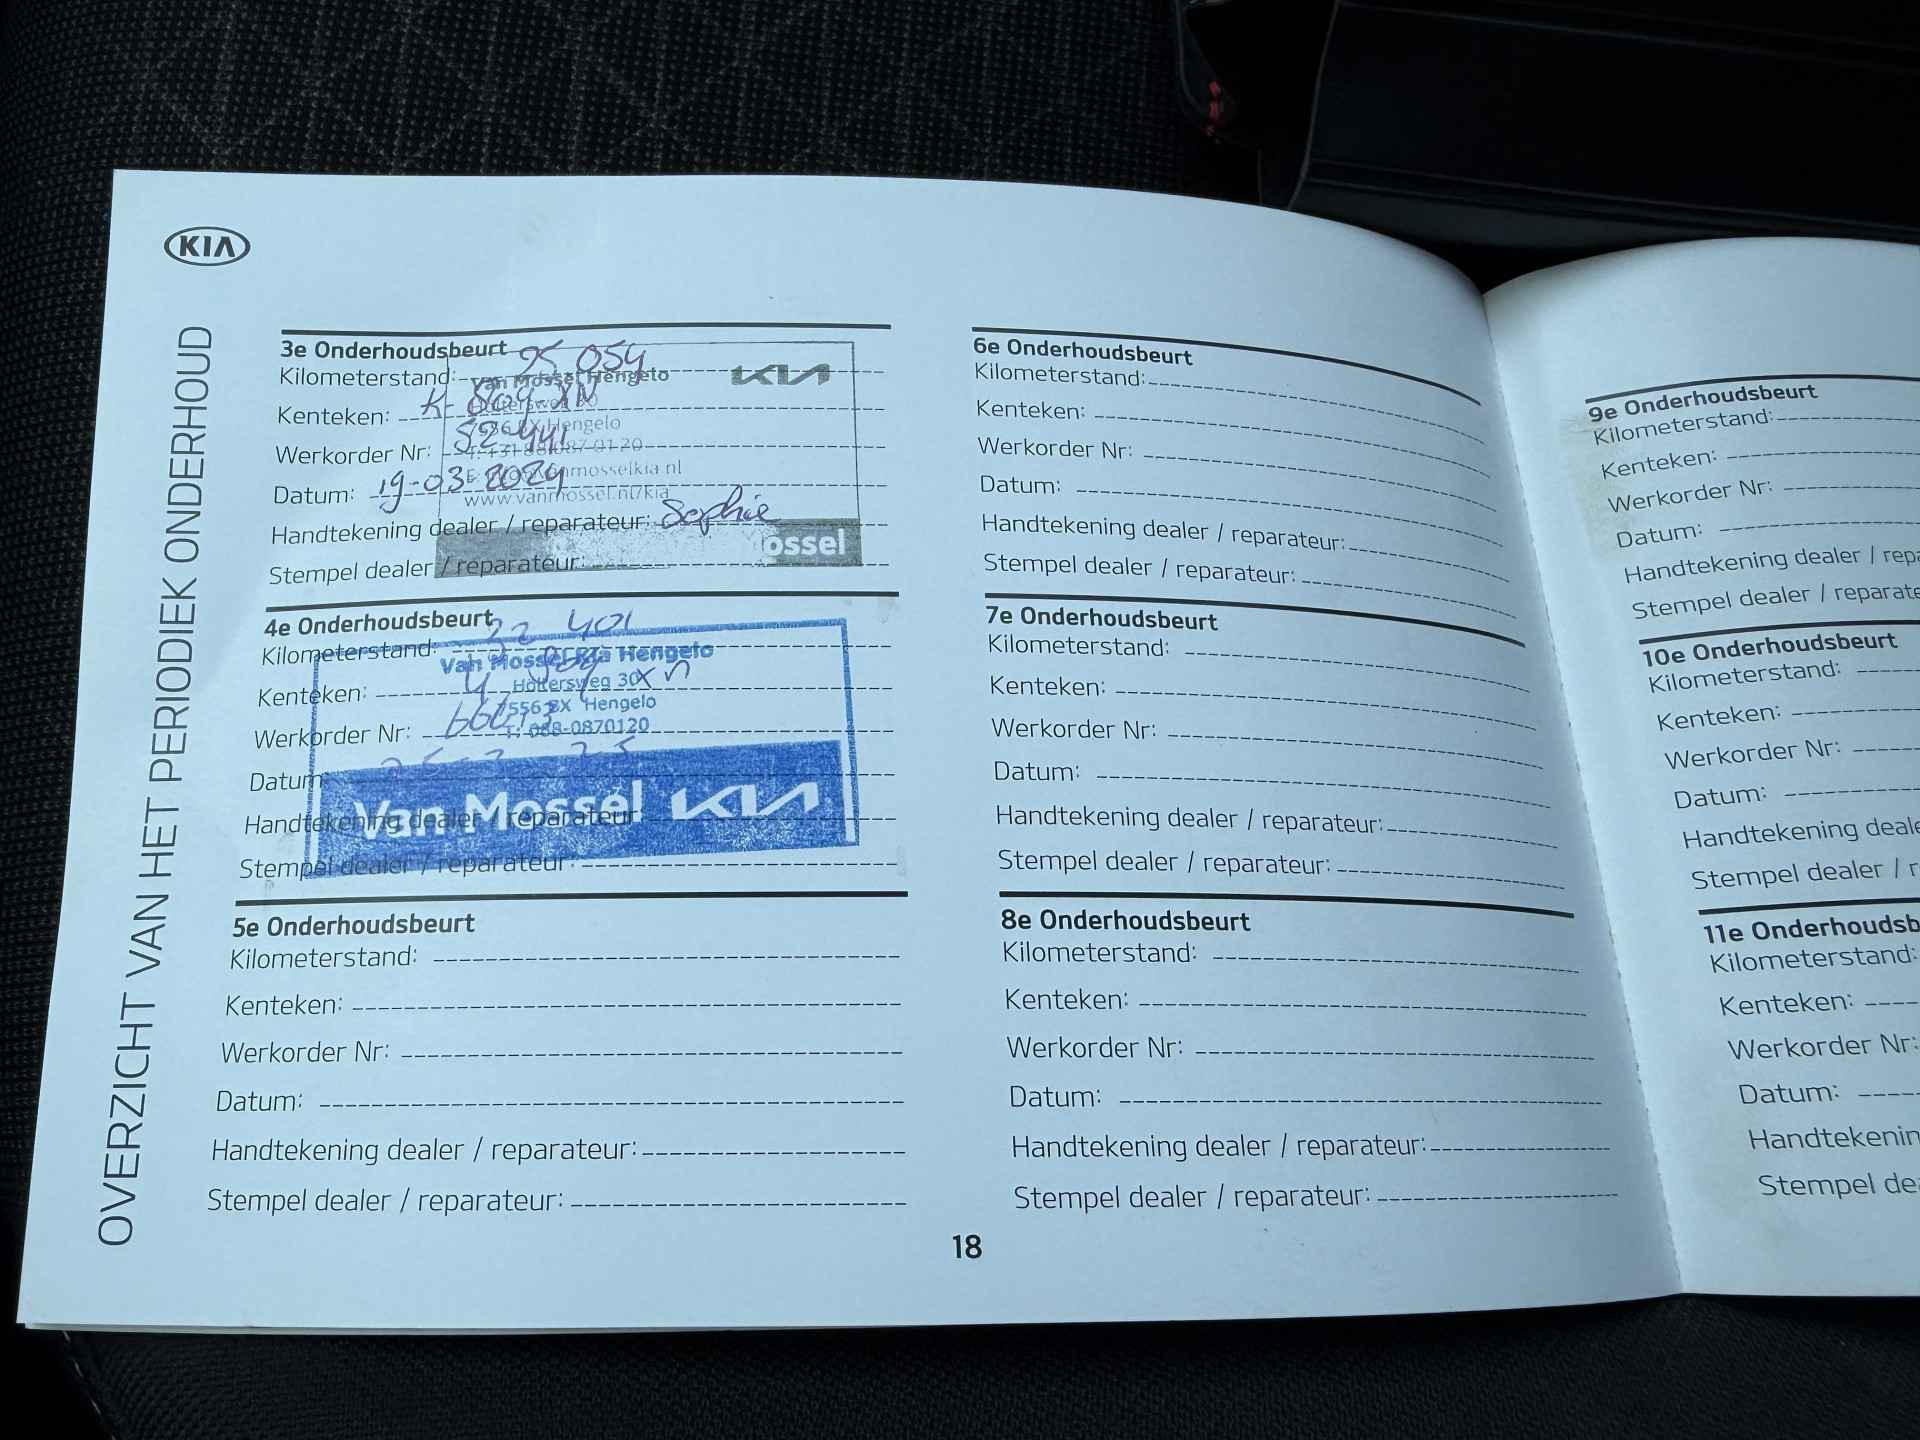 KIA
OVERZICHT VAN HET PERIODIEK ONDERHOUD
3e Onderhoudsbeurt
Kilometerstand: 25 054
Kenteken: K-804-XN
Werkorder Nr: 52441
Datum: 19-03-2024
Handtekening dealer / reparateur: Sophie
Stempel dealer / reparateur:
Van Mossel Hengelo
KIA
Hengelo
www.vanmossel.nl/kia
ossel
4e Onderhoudsbeurt
Kilometerstand:
Kenteken: XN
Werkorder Nr:
Datum:
Handtekening dealer / reparateur:
Stempel dealer / reparateur:
Van Mossel Kia Hengelo
Holtersweg 30
7556 BX Hengelo
T: 088-0870120
Van Mossel KIA
5e Onderhoudsbeurt
Kilometerstand:
Kenteken:
Werkorder Nr:
Datum:
Handtekening dealer / reparateur:
Stempel dealer / reparateur:
6e Onderhoudsbeurt
Kilometerstand:
Kenteken:
Werkorder Nr:
Datum:
Handtekening dealer / reparateur:
Stempel dealer / reparateur:
7e Onderhoudsbeurt
Kilometerstand:
Kenteken:
Werkorder Nr:
Datum:
Handtekening dealer / reparateur:
Stempel dealer / reparateur:
8e Onderhoudsbeurt
Kilometerstand:
Kenteken:
Werkorder Nr:
Datum:
Handtekening dealer / reparateur:
Stempel dealer / reparateur:
18
9e Onderhoudsbeurt
Kilometerstand:
Kenteken:
Werkorder Nr:
Datum:
Handtekening dealer / repa
Stempel dealer / reparate
10e Onderhoudsbeurt
Kilometerstand:
Kenteken:
Werkorder Nr:
Datum:
Handtekening deale
Stempel dealer / r
11e Onderhoudsb
Kilometerstand:
Kenteken:
Werkorder Nr:
Datum:
Handtekenin
Stempel de